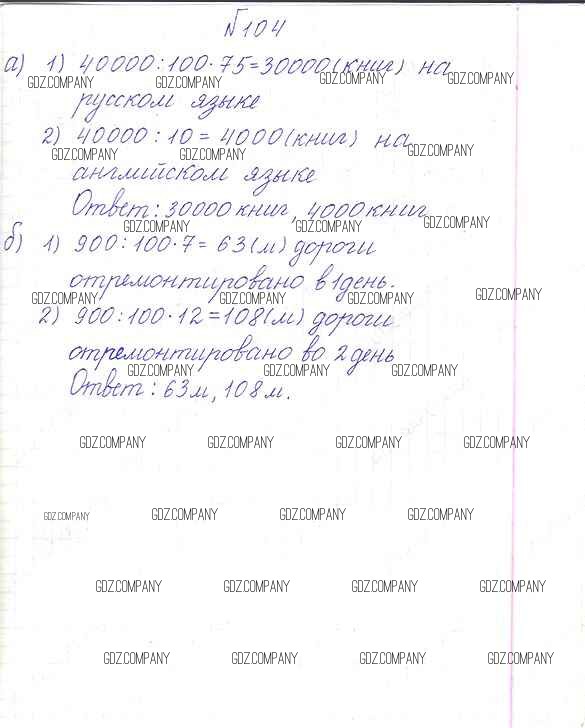 №104
а) 1) 40000:100·75=30000(книг) на
GDZ.COMPANY GDZ.COMPANY GDZ.COMPANY GDZ.COMPANY
русском языке
2) 40000:10=4000(книг) на
GDZ.COMPANY GDZ.COMPANY GDZ.COMPANY
английском языке
Ответ: 30000 книг, 4000 книг
GDZ.COMPANY GDZ.COMPANY GDZ.COMPANY
б) 1) 900:100·7=63(м) дороги
отремонтировано в 1 день.
GDZ.COMPANY GDZ.COMPANY GDZ.COMPANY GDZ.COMPANY
2) 900:100·12=108(м) дороги
отремонтировано во 2 день
GDZ.COMPANY GDZ.COMPANY GDZ.COMPANY
Ответ: 63м, 108м.
GDZ.COMPANY GDZ.COMPANY GDZ.COMPANY GDZ.COMPANY
GDZ.COMPANY GDZ.COMPANY GDZ.COMPANY GDZ.COMPANY
GDZ.COMPANY GDZ.COMPANY GDZ.COMPANY GDZ.COMPANY
GDZ.COMPANY GDZ.COMPANY GDZ.COMPANY GDZ.COMPANY